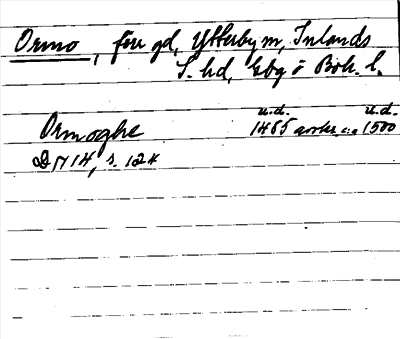 Ormo, förr gd, Ytterby sn, Inlands
S. hd, Gbg o Boh. l.
u.d. u.d.
Ormoghe 1465 avskr. c:a 1500
DN 14, s. 124